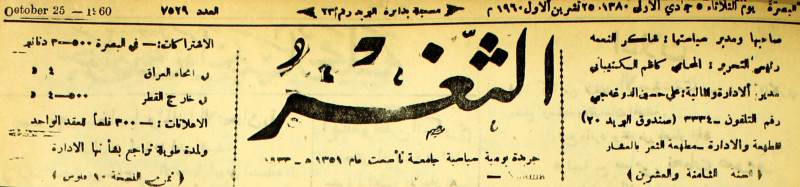 البصرة يوم الثلاثاء ٥ جمادي الاولى ١٣٨٠، ٢٥ تشرين الاول ١٩٦٠ م
مسجلة بدائرة البريد رقم ٢٣
العدد ٧٥٢٩
October 25 — 1960
صاحبها ومدير سياستها : شاكر النعمه
رئيس التحرير : المحامي كاظم
مدير الادارة والمالية : علي حسين
رقم التلفون - ٣٣٣٤ (صندوق البريد ٢٠)
مطبعة والادارة - مطبعة الثغر بالعشار
( السنة الثامنة والعشرين )
الثغر
جريدة يومية سياسية جامعة تأسست عام ١٣٥١ ه - ١٩٣٣
الاشتراكات :— في البصرة ٥٠٠-٣ دنانير
في انحاء العراق ٤ د
في خارج القطر ٥٠٠-٤ د
الاعلانات :— ٣٠٠ فلساً للعقد الواحد
ولمدة طويلة تراجع بشأنها الادارة
( ثمن النسخة ١٠ فلوس )